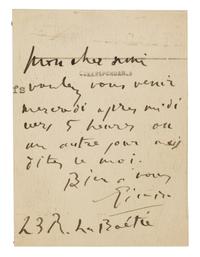 mon cher ami
CORRESPONDANCE
voulez vous venir
mercredi apres midi
vers 5 heures ou
un autre jour mais
dites le moi.
Bien a vous
Picasso
23 R. La Boétie